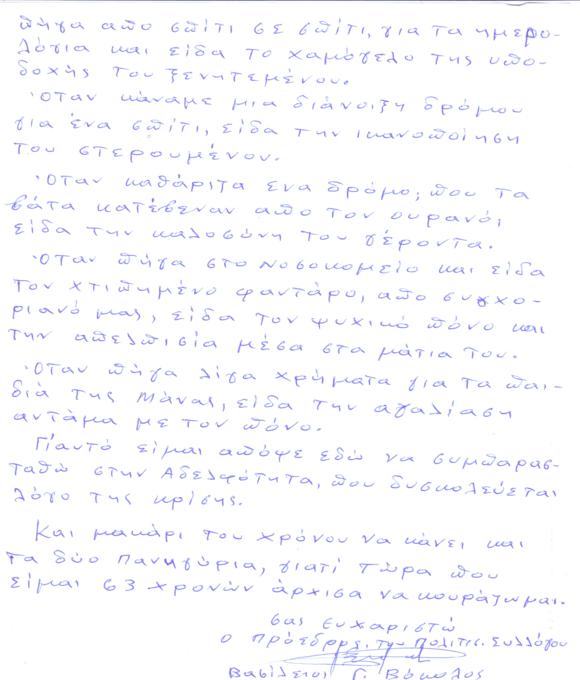 πήγα απο σπίτι σε σπίτι, για τα ημερο-
λόγια και είδα το χαμόγελο της υπο-
δοχής του ξενητεμένου.
Όταν κάναμε μια διάνοιξη δρόμου
για ένα σπίτι, είδα την ικανοποίηση
του στερουμένου.
Όταν καθάριζα ενα δρόμο, που τα
βάτα κατέβεναν απο τον ουρανό,
είδα την καλοσύνη του γέροντα.
Όταν πήγα στο Νοσοκομείο και είδα
τον χτιπημένο φαντάρο, απο συγχο-
ριανό μας, είδα τον ψυχικό πόνο και
την απελπισία μέσα στα μάτια του.
Όταν πήγα λίγα χρήματα για τα παι-
διά της Μάνας, είδα την αγαλίαση
αντάμα με τον πόνο.
Γι'αυτό είμαι απόψε εδώ να συμπαρασ-
ταθώ στην Αδελφότητα, που δυσκολεύεται
λόγο της κρίσης.
Και μακάρι του χρόνου να κάνει και
τα δύο Πανηγύρια, γιατί τώρα που
είμαι 63 χρονών άρχισα να κουράζωμαι.
Σας Ευχαριστώ
Ο Πρόεδρος του Πολιτισ. Συλλόγου
Βασίλειος Γ. Βόκολος